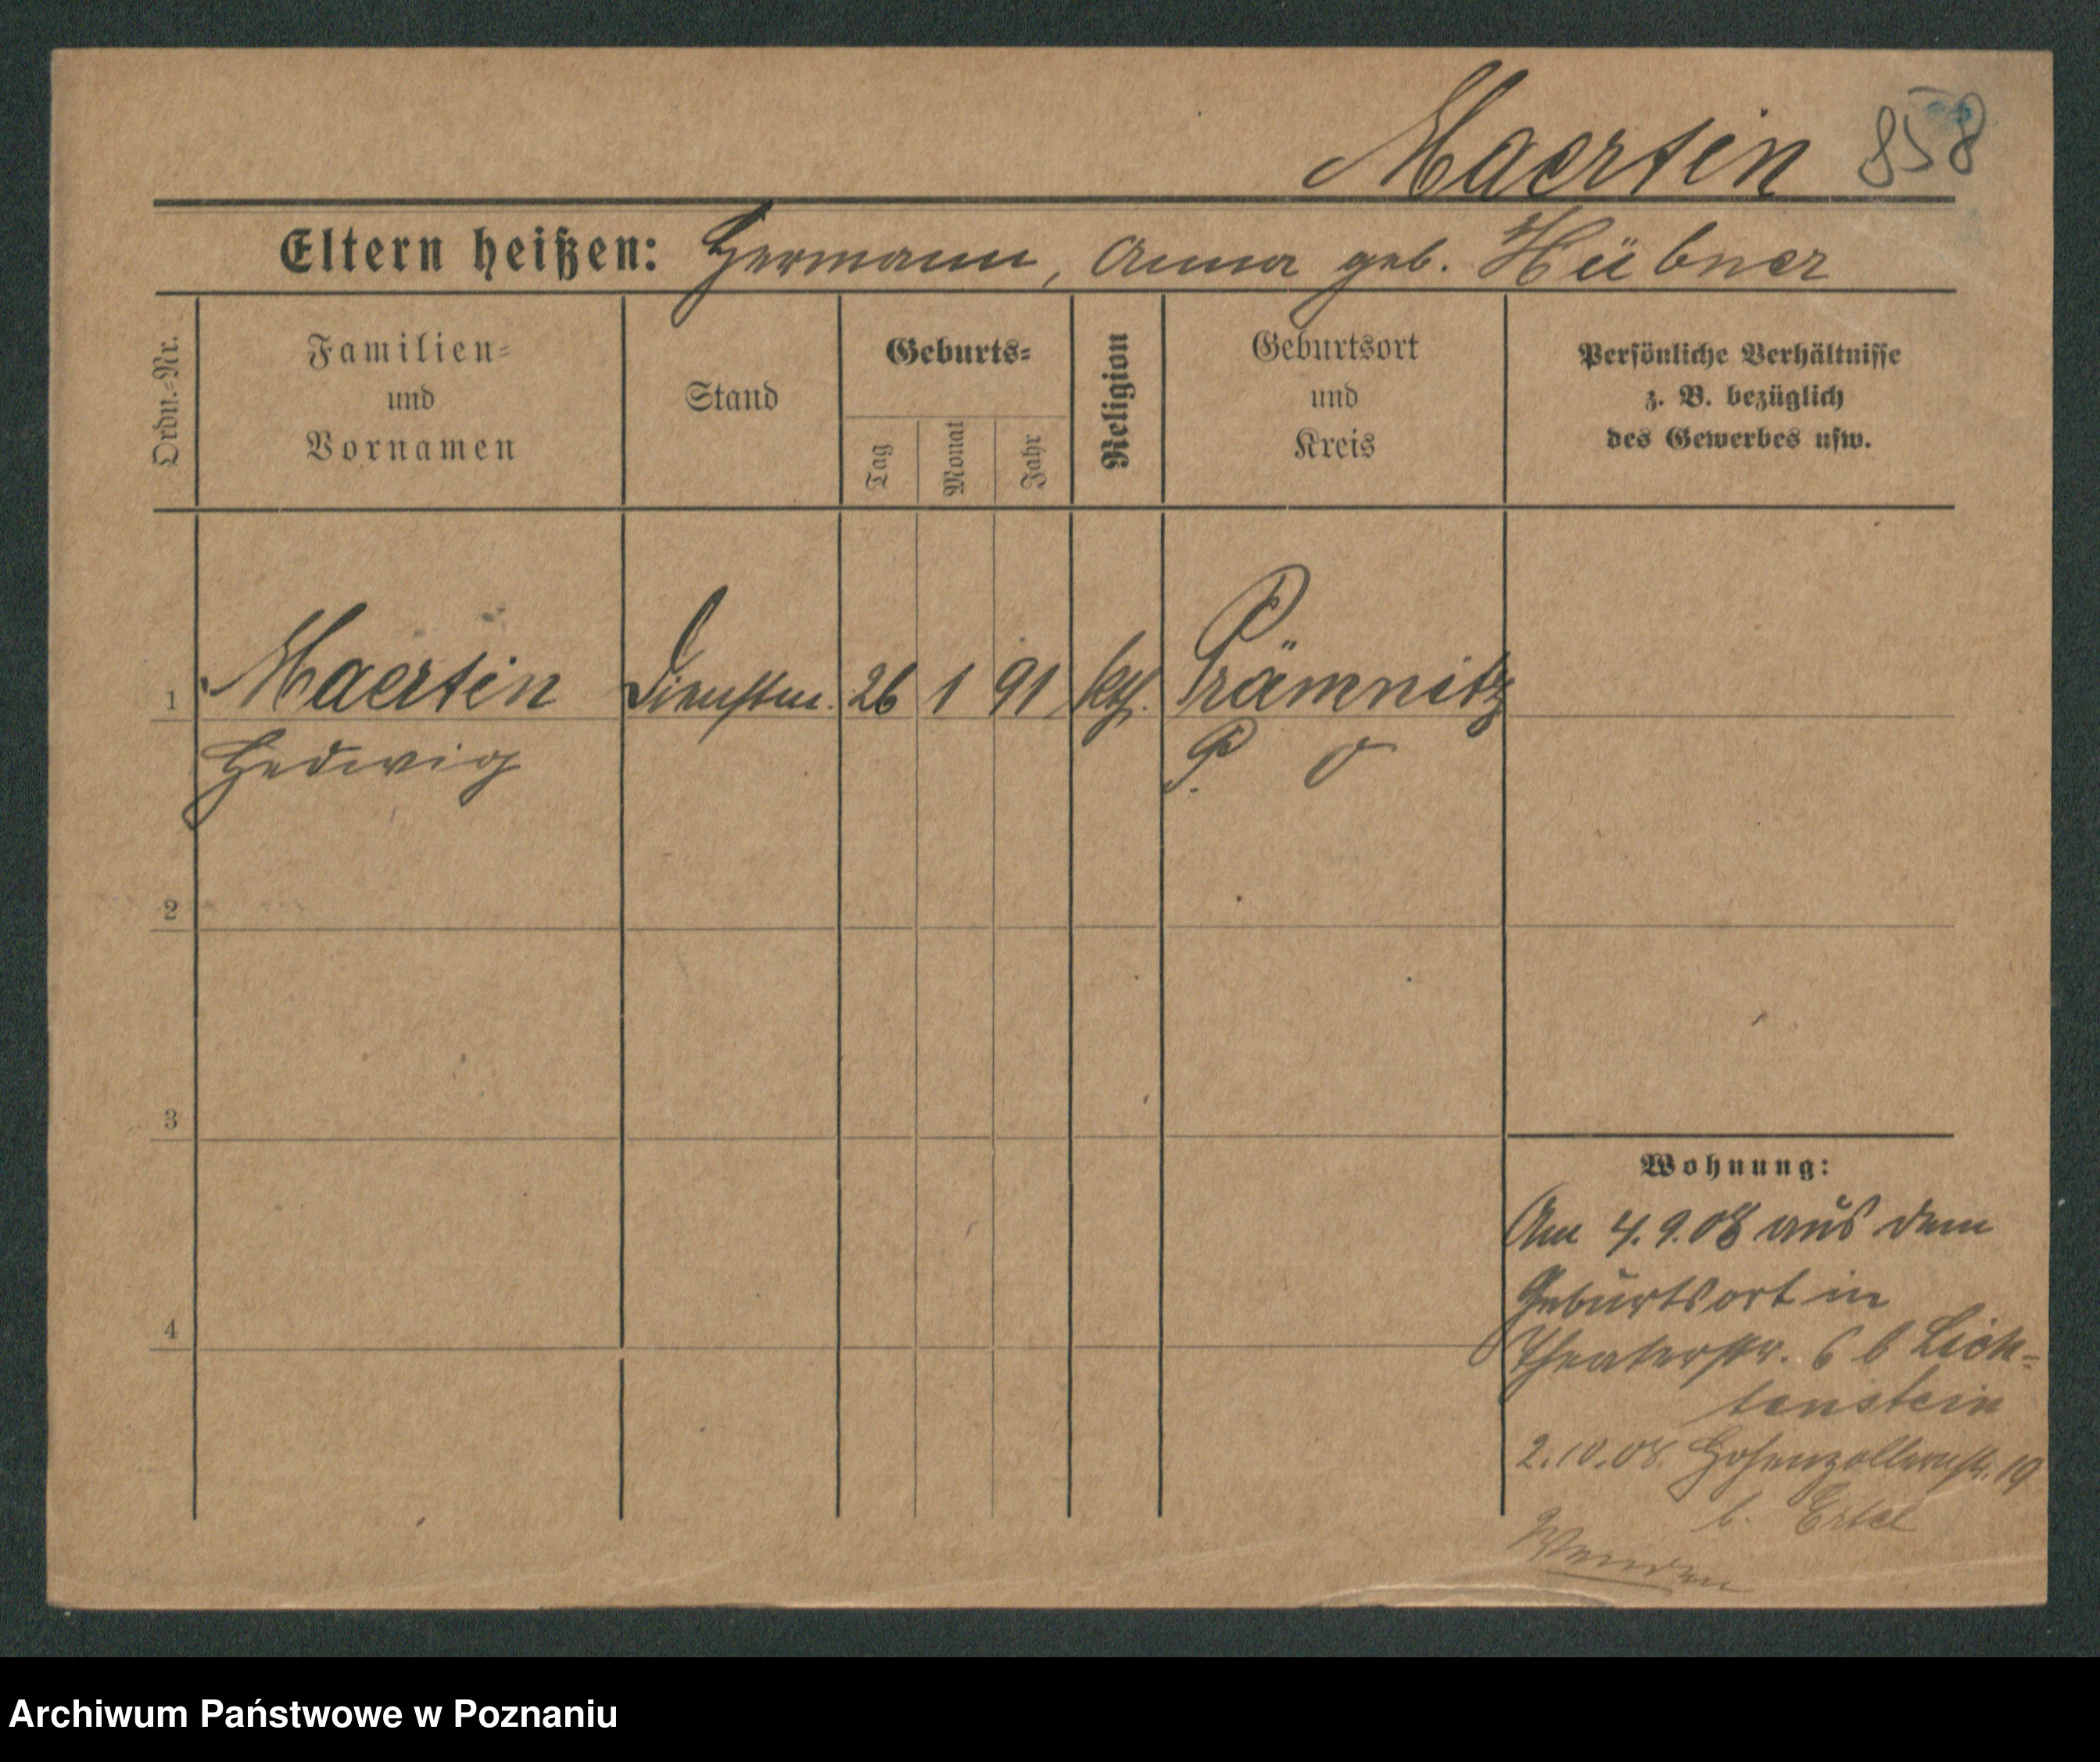 Maertin 858
Eltern heißen: Hermann, Anna geb. Hübner
Ordn.-Nr.
Familien-
und
Vornamen
Stand
Geburts-
Tag
Monat
Jahr
Religion
Geburtsort
und
Kreis
Persönliche Verhältnisse
z. B. bezüglich
des Gewerbes usw.
1 Maertin Dienstm. 26 1 91 kth. Prämnitz
Hedwig P. O
2
3
4
Wohnung:
Am 4.9.08 aus dem
Geburtsort in
Theaterstr. 6 b Lich-
tenstein
2.10.08. Hohenzollernstr. 19
b. Ertel
Wenden
Archiwum Państwowe w Poznaniu